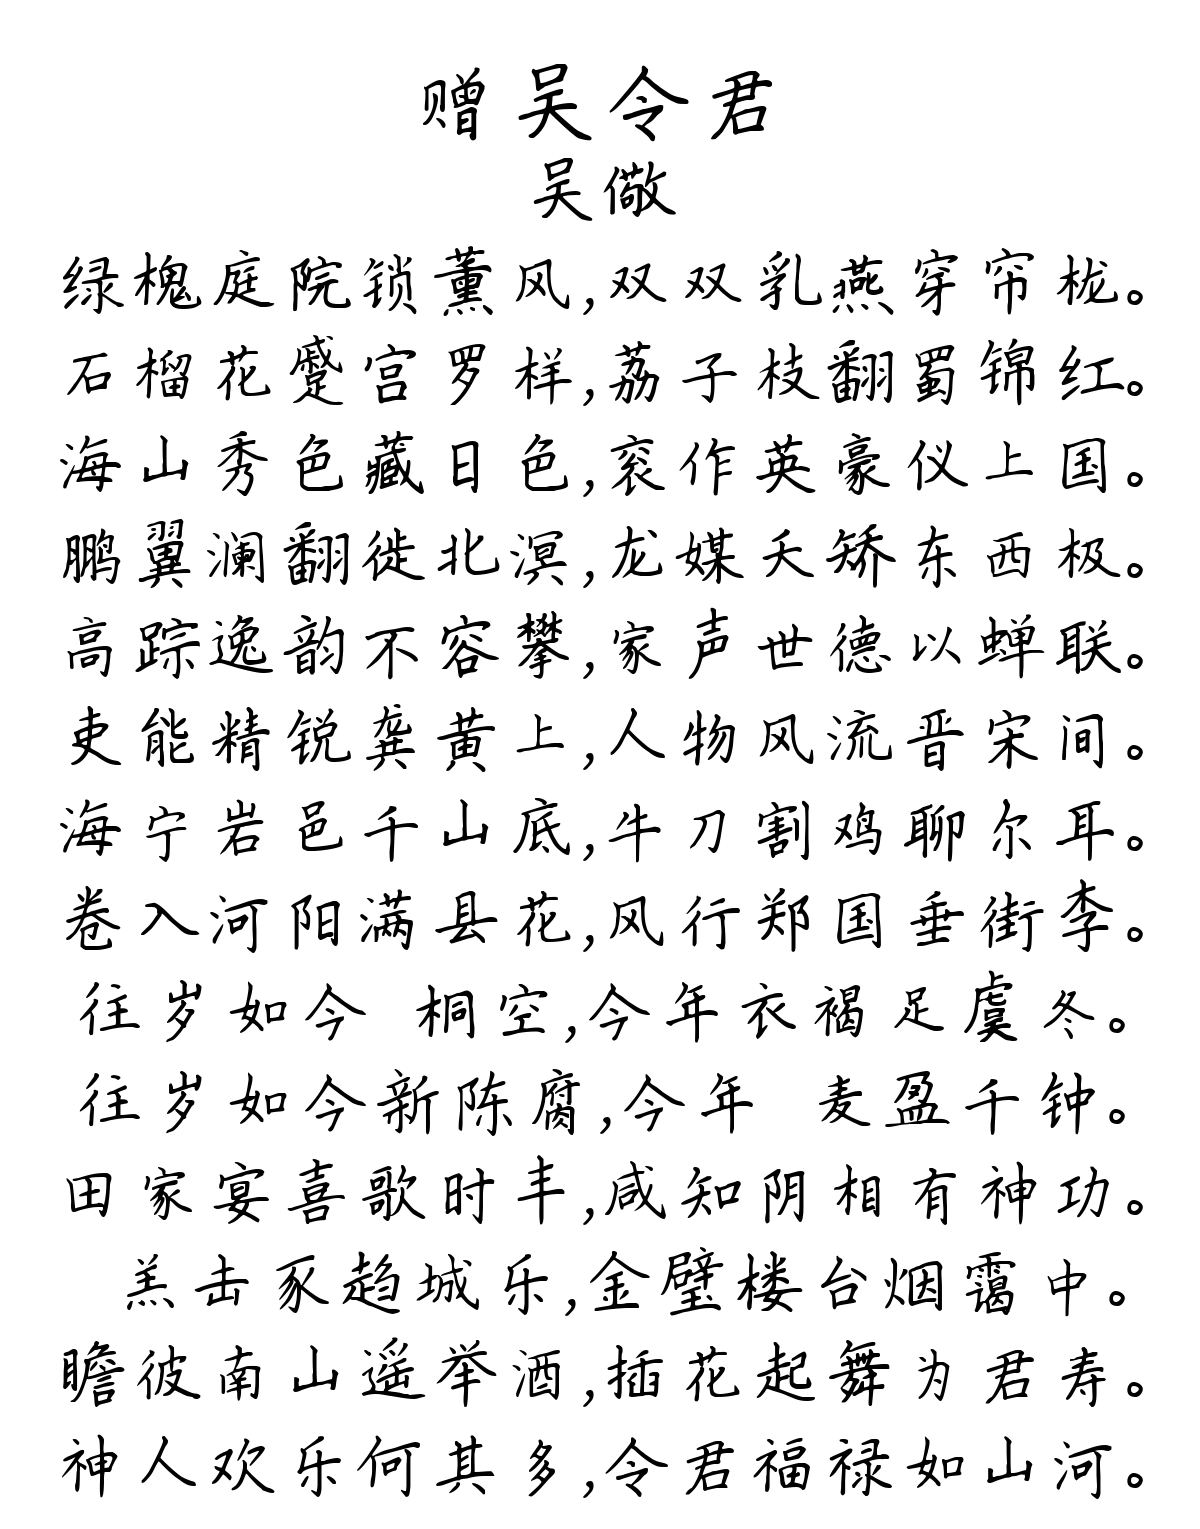 赠吴令君
吴儆
绿槐庭院锁薰风,双双乳燕穿帘栊。
石榴花蹙宫罗样,荔子枝翻蜀锦红。
海山秀色藏日色,衮作英豪仪上国。
鹏翼澜翻徙北溟,龙媒夭矫东西极。
高踪逸韵不容攀,家声世德以蝉联。
吏能精锐龚黄上,人物风流晋宋间。
海宁岩邑千山底,牛刀割鸡聊尔耳。
卷入河阳满县花,风行郑国垂街李。
往岁如今 桐空,今年衣褐足虞冬。
往岁如今新陈腐,今年 麦盈千钟。
田家宴喜歌时丰,咸知阴相有神功。
羔击豕趋城乐,金璧楼台烟霭中。
瞻彼南山遥举酒,插花起舞为君寿。
神人欢乐何其多,令君福禄如山河。